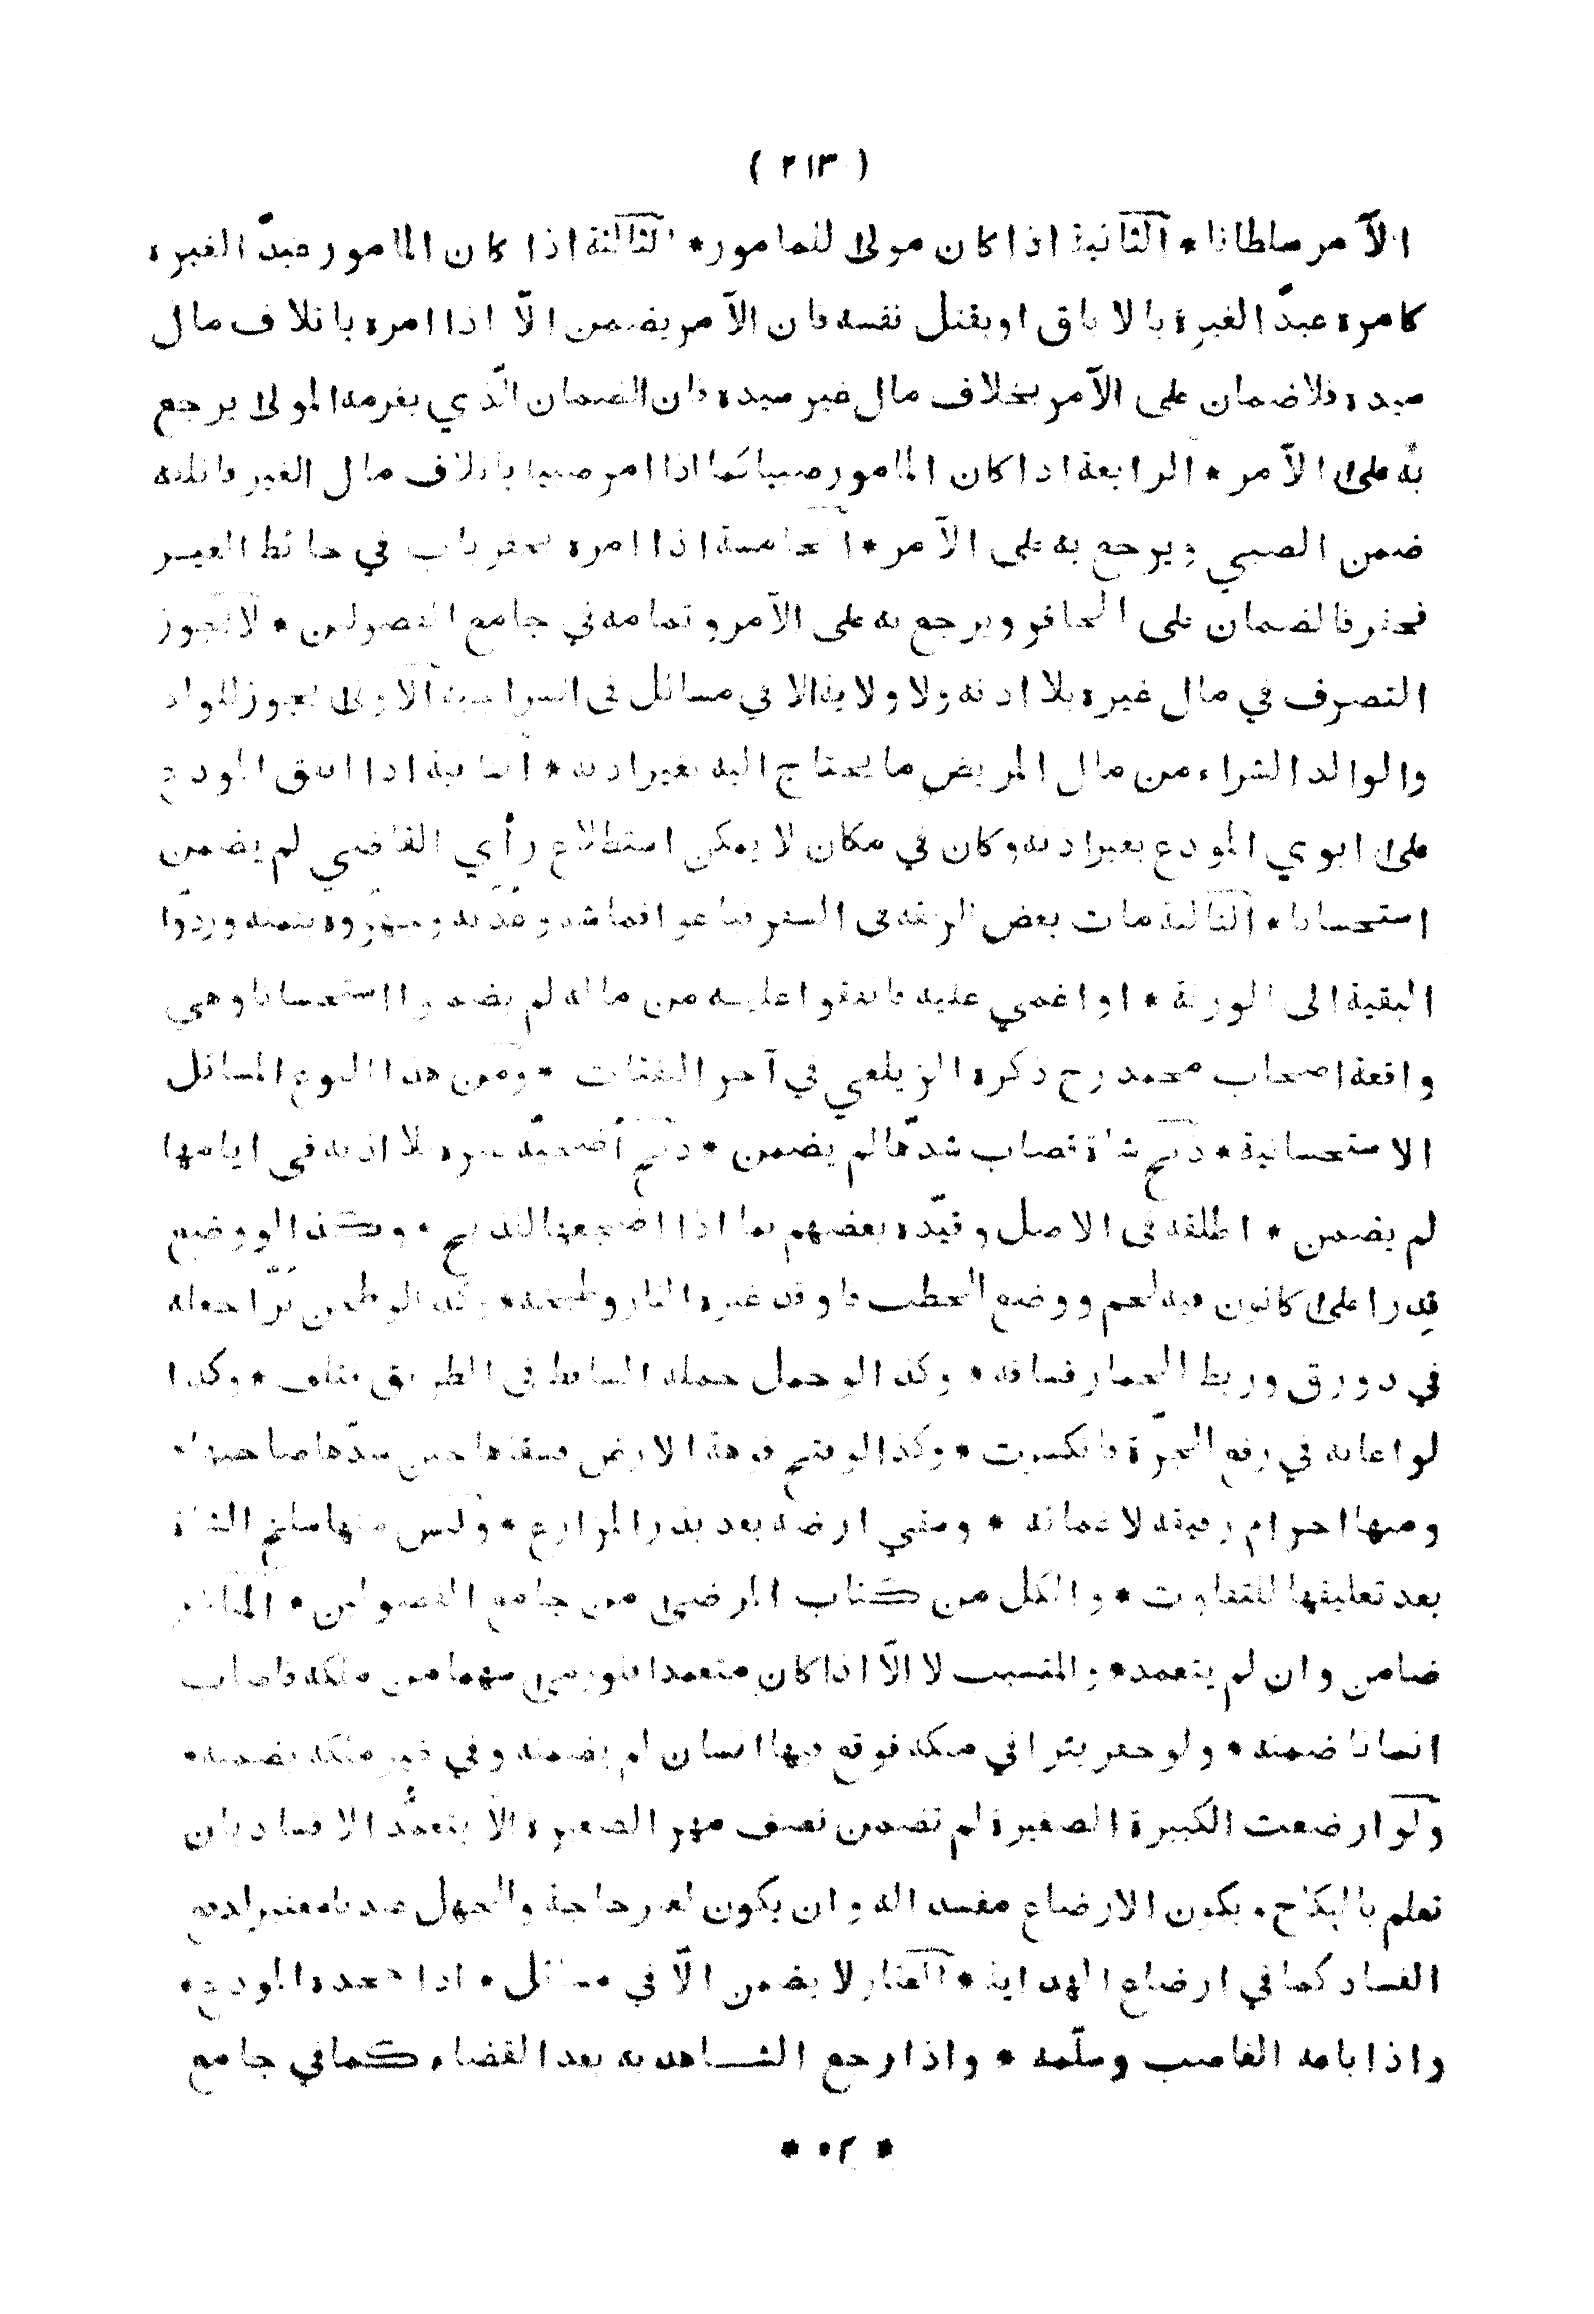 ( ٢١٣ )
الآمر سلطانا * الثانية اذا كان مولى للمامور * الثالثة اذا كان المامور عبد الغيره
كامره عبد الغيره بالاباق او بقتل نفسه فان الآمر يضمن الّا اذا امره باتلاف مال
سيده فلا ضمان على الآمر بخلاف مال غير سيده فان الضمان الّذي يغرمه المولى يرجع
به على الآمر * الرابعة اذا كان المامور صبيا كما اذا امر صبيا باتلاف مال الغير فاتلفه
ضمن الصبي ويرجع به على الآمر * الخامسة اذا امره بحفر باب في حائط الغيـر
فحفر فالضمان على الحافر ويرجع به على الآمر وتمامه في جامع الفصولين * لا يجوز
التصرف في مال غيره بلا اذنه ولا ولاية الا في مسائل فى السراجية الاولى يجوز للولد
والوالد الشراء من مال المريض ما يحتاج اليه بغير اذنه * الثانية اذا انفق المودع
على ابوي المودع بغير اذنه وكان في مكان لا يمكن استطلاع رأي القاضي لم يضمن
استحسانا * الثالثة مات بعض الرفقة فى السفر فباعوا قماشه وعدّته وجهّزوه بثمنه وردّوا
البقية الى الورثة * او اغمي عليه فانفقوا عليـه من ماله لم يضمنوا استحسانا وهي
واقعة اصحاب محمد رح ذكره الزيلعي في آخر النفقات * ومن هذا النوع المسائل
الاستحسانية * ذبح شاة قصاب شدّها لم يضمن * ذبح أضحيّة غيره بلا اذنه فى ايامها
لم يضمن * اطلقه فى الاصل وقيّده بعضهم بما اذا اضجعها للذبح * وكذا لو وضع
قدرا على كانون فيه لحم ووضع الحطب فاوقد غيره النار وطبخه * وكذا لو طحن برّا جعله
في دورق وربط الحمار فساقه * وكذا لو حمل حمله الساقط فى الطريق فتلف * وكذا
لو اعانه في رفع الجرّة فانكسرت * وكذا لو فتح فوهة الارض فسقاها حين سدّها صاحبها *
ومنها احرام رفيقه لاغمائه * وسقي ارضه بعد بذر المزارع * وليس منها سلخ الشاة
بعد تعليقها للتفاوت * والكل من كتاب المرضى من جامع الفصولين * المباشر
ضامن وان لم يتعمد * والمتسبب لا الّا اذا كان متعمدا فلو رمى سهما من ملكه فاصاب
انسانا ضمنه * ولو حفر بئرا في ملكه فوقع فيها انسان لم يضمنه وفي غير ملكه يضمنه *
ولو ارضعت الكبيرة الصغيرة لم تضمن نصف مهر الصغيرة الّا بتعمّد الافساد بان
تعلم بالنكاح وبكون الارضاع مفسدا له وان يكون لغير حاجة والجهل عندنا معتبر لدفع
الفساد كما في ارضاع الهداية * العقار لا يضمن الّا في مسائل * اذا جحده المودع *
واذا باعه الغاصب وسلّمه * واذا رجع الشـاهد به بعد القضاء كما في جامع